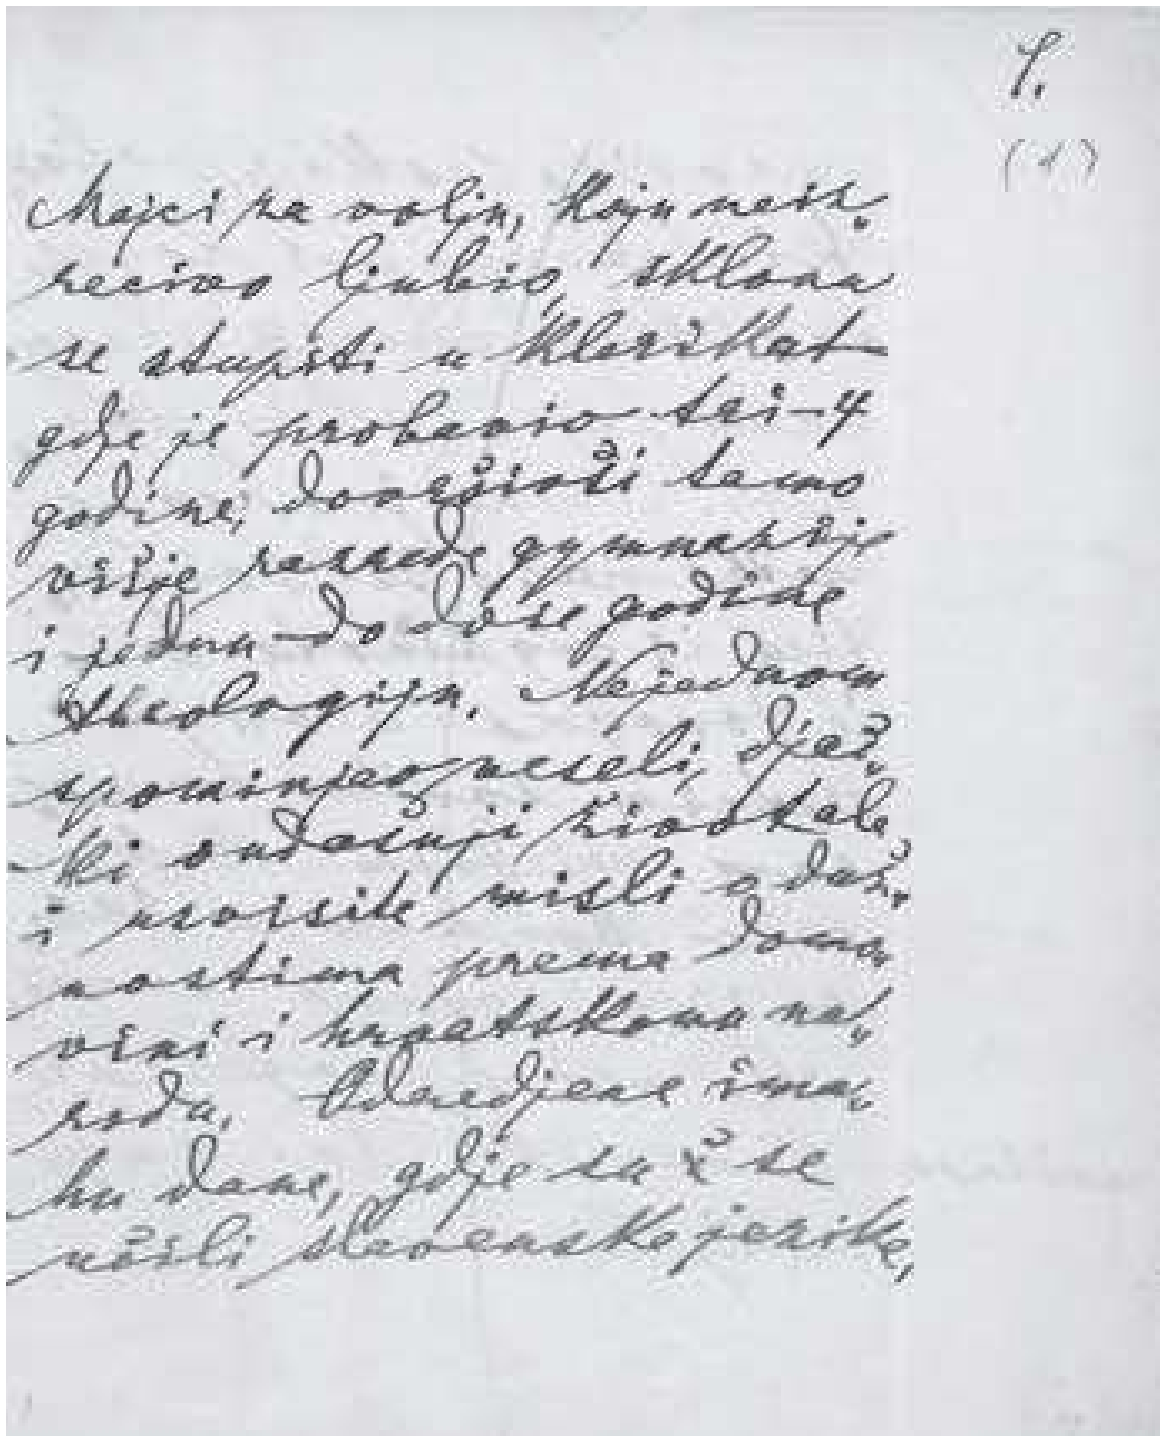 (1)
Majci za volju, koju neiz„
recivo ljubio, sklonu
se stupiti u klerikat
gdje je probavio tri–4
godine, dovršivši tamo
višje razrede gymnazije
i jednu do dvie godine
theologiju. Nejednom
spominje veseli, djač„
ki ondašnji život ale
i uzvišite misli o duž„
nostima prema domo„
vini i hrvatskomu na„
rodu. Odredjene ima„
hu dane, gdje su se
učili slavenske jezike,